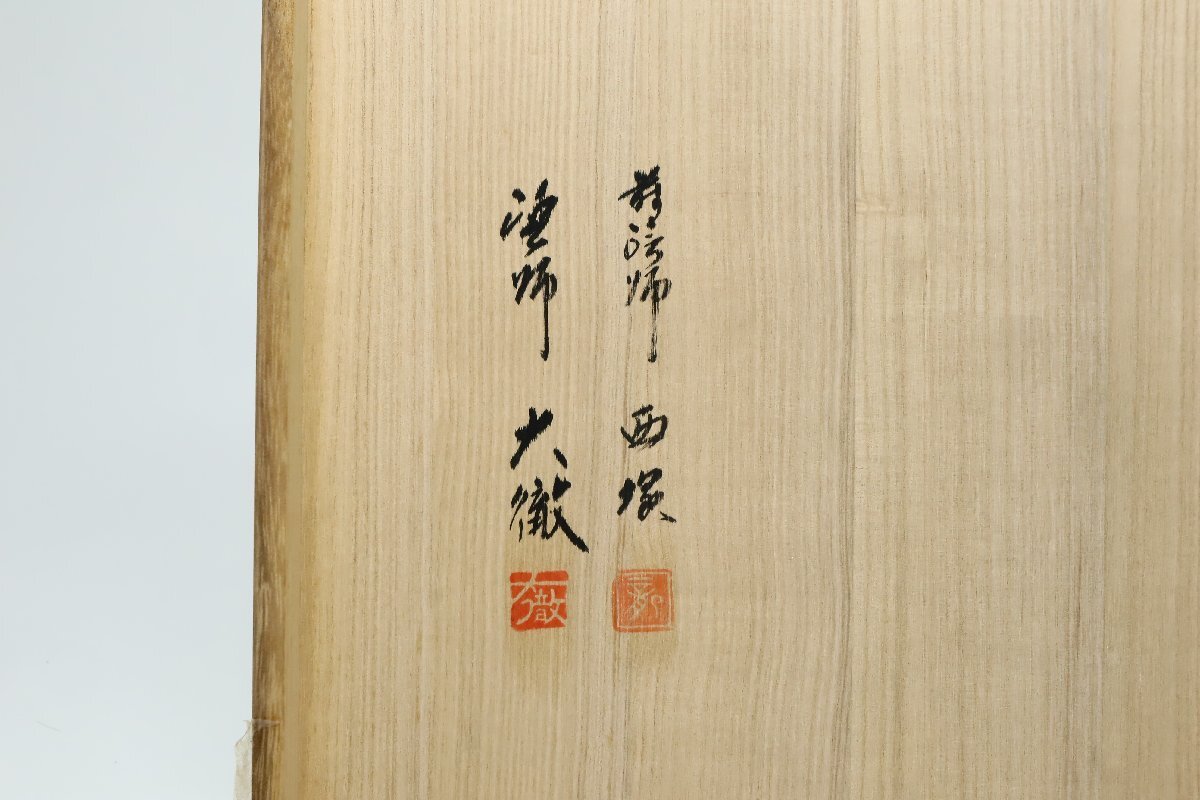 蒔絵師 西塚
塗師 大徹
大徹